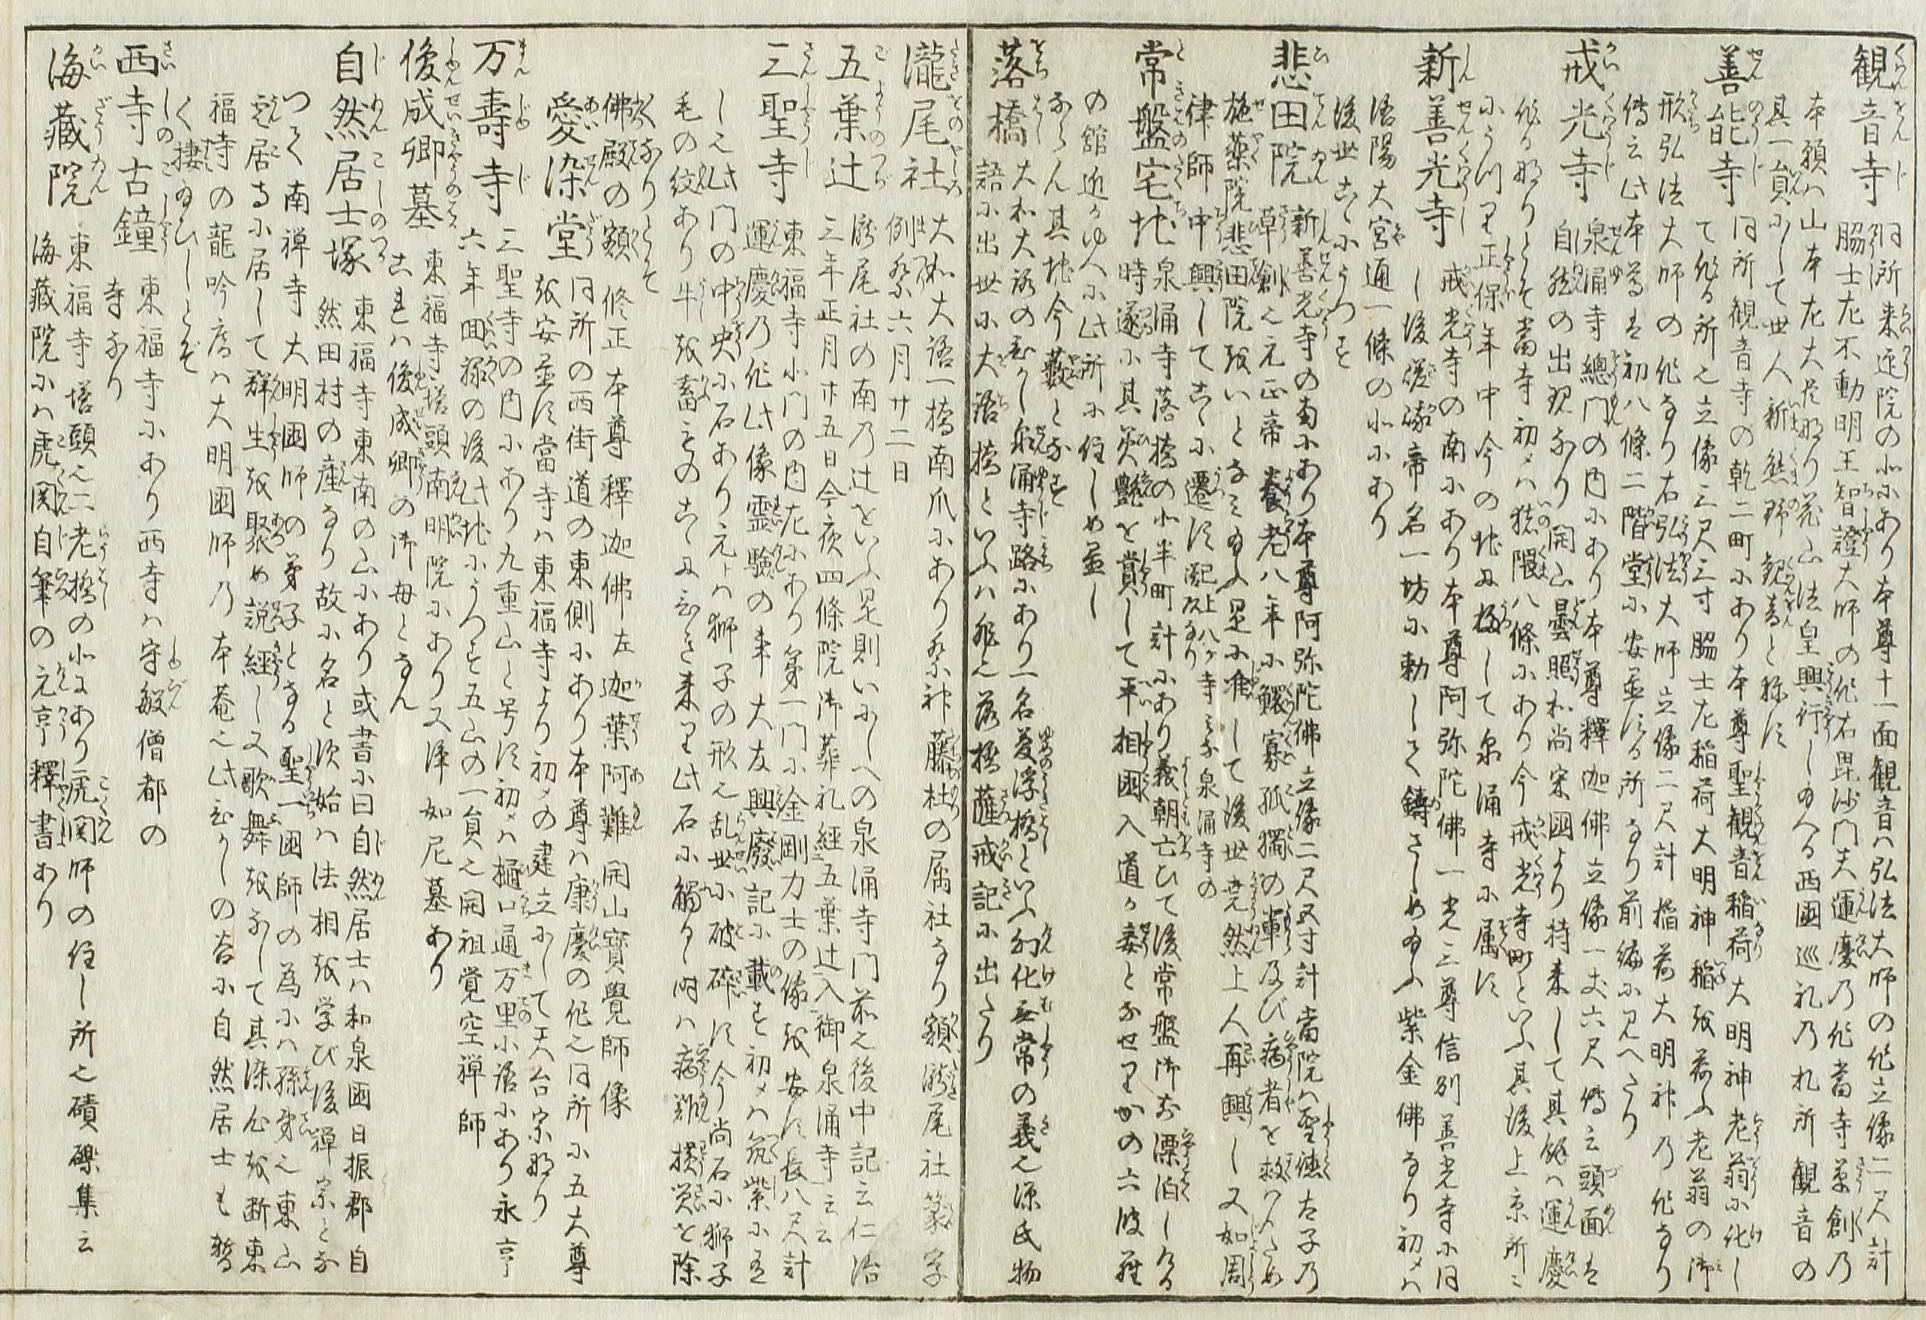 観音寺 同所来迎院の北にあり本尊十一面観音ハ弘法大師の作立像二尺計
脇士左不動明王智證大師の作右毘沙門天運慶乃作当寺草創乃
本願ハ山本左大臣なり花山法皇興行し給へる西國巡礼乃札所観音の
其一員にして世人新熊野観音と称す
善能寺 同所観音寺の乾二町にあり本尊聖観音稲荷大明神老翁に化し
て作る所之立像三尺三寸脇士左稲荷大明神稲を荷ふ老翁の御
形弘法大師の作なり右弘法大師立像二尺計稲荷大明神乃作なり
傳云此本尊は初八條二階堂に安置する所なり前編に見へたり
戒光寺 泉涌寺總門の内にあり本尊釋迦佛立像一丈六尺傳云頭面は
自然の出現なり開山曇照和尚宋國より持来して其餘ハ運慶
作る那りとそ当寺初メハ猪隈八條にあり今戒光寺町といふ其後上京所々
にうつり正保年中今の地に移して泉涌寺に属す
新善光寺 戒光寺の南にあり本尊阿弥陀佛一光三尊信列善光寺に同
し後嵯峨帝名一坊に勅して鋳さしめ給ふ紫金佛なり初メハ
洛陽大宮通一條の北にあり
後世こゝにうつす
悲田院 新善光寺の南にあり本尊阿弥陀佛立像二尺五寸計当院ハ聖徳太子乃
草創之元正帝養老八年に鰥寡孤獨の輩及び病者を救ハんため
施薬院悲田院をいとなミ給ふ是に准して後世堯然上人再興し又如周
律師中興してこゝに遷す 已上八ヶ寺ミな泉涌寺の
常盤宅地 泉涌寺落橋の北半町計にあり義朝亡ひて後常盤御前漂泊しける
時遂に其美艶を賞して平相國入道の妾となせりかの六波羅
の館近きゆへに此所に住しめ置し
ならん其地今藪となる
落橋 大和大路の東泉涌寺路にあり一名夢浮橋といふ幻化無常の義之源氏物
語に出世に大語橋といふハ非之落橋薩戒記に出たり
瀧尾社 大和大語一橋南爪にあり祭神藤杜の属社なり額瀧尾社篆字
例祭六月廿二日
五葉辻 瀧尾社の南乃辻をいふ是則いにしへの泉涌寺門前之後中記云仁治
三年正月廿五日今夜四條院御葬礼經五葉辻入御泉涌寺云云
三聖寺 東福寺北門の内左にあり第一門に金剛力士の像を安す長八尺計
運慶乃作此像霊験の事大友興廢記に載す初メハ筑紫に在
しを此門の中央に石あり元ハ獅子の形之乱世に破碎す今尚石に獅子
毛の紋あり牛を畜ものこゝに引き来り此石に觸るゝ時ハ病難横災を除
くなりとそ
佛殿の額 修正 本尊釋迦佛左迦葉阿難 開山寶覺師像
愛染堂 同所の西街道の東側にあり本尊ハ康慶の作之同所に五大尊
を安置す当寺ハ東福寺より初メの建立にして天台宗那り
万壽寺 三聖寺の内にあり九重山と号す初メハ樋口通万里小語にあり永亨
六年回禄の後此地にうつる五山の一員之開祖覚空禅師
俊成卿墓 東福寺塔頭南明院にあり又浄如尼墓あり
これハ俊成卿の御母となん
自然居士塚 東福寺東南の山にあり或書に曰自然居士ハ和泉國日振郡自
然田村の産なり故に名とす始ハ法相を学び後禅宗とな
つて南禅寺大明國師の弟子となる聖一國師の為にハ孫弟之東山
雲居寺に居して群生を聚め説經し又歌舞をなして其染心を断東
福寺の龍吟庵ハ大明國師乃本菴之此東の谷に自然居士も暫
く棲ゐひしとぞ
西寺古鐘 東福寺にあり西寺ハ守敏僧都の
寺なり
海藏院 東福寺塔頭之二老橋の北にあり虎関師の住し所之磧礫集云
海藏院にハ虎関自筆の元亨釋書あり